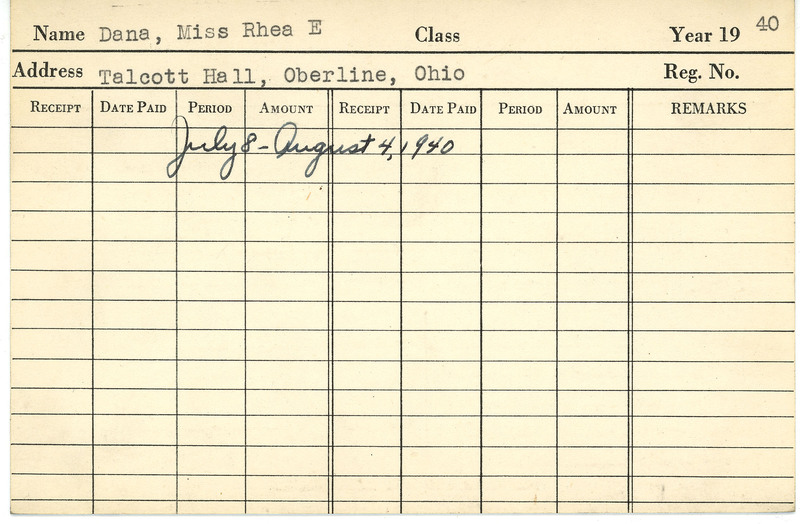 Name Dana, Miss Rhea E Class Year 19 40
Address Talcott Hall, Oberline, Ohio Reg. No.
RECEIPT DATE PAID PERIOD AMOUNT RECEIPT DATE PAID PERIOD AMOUNT REMARKS
July 8 - August 4, 1940